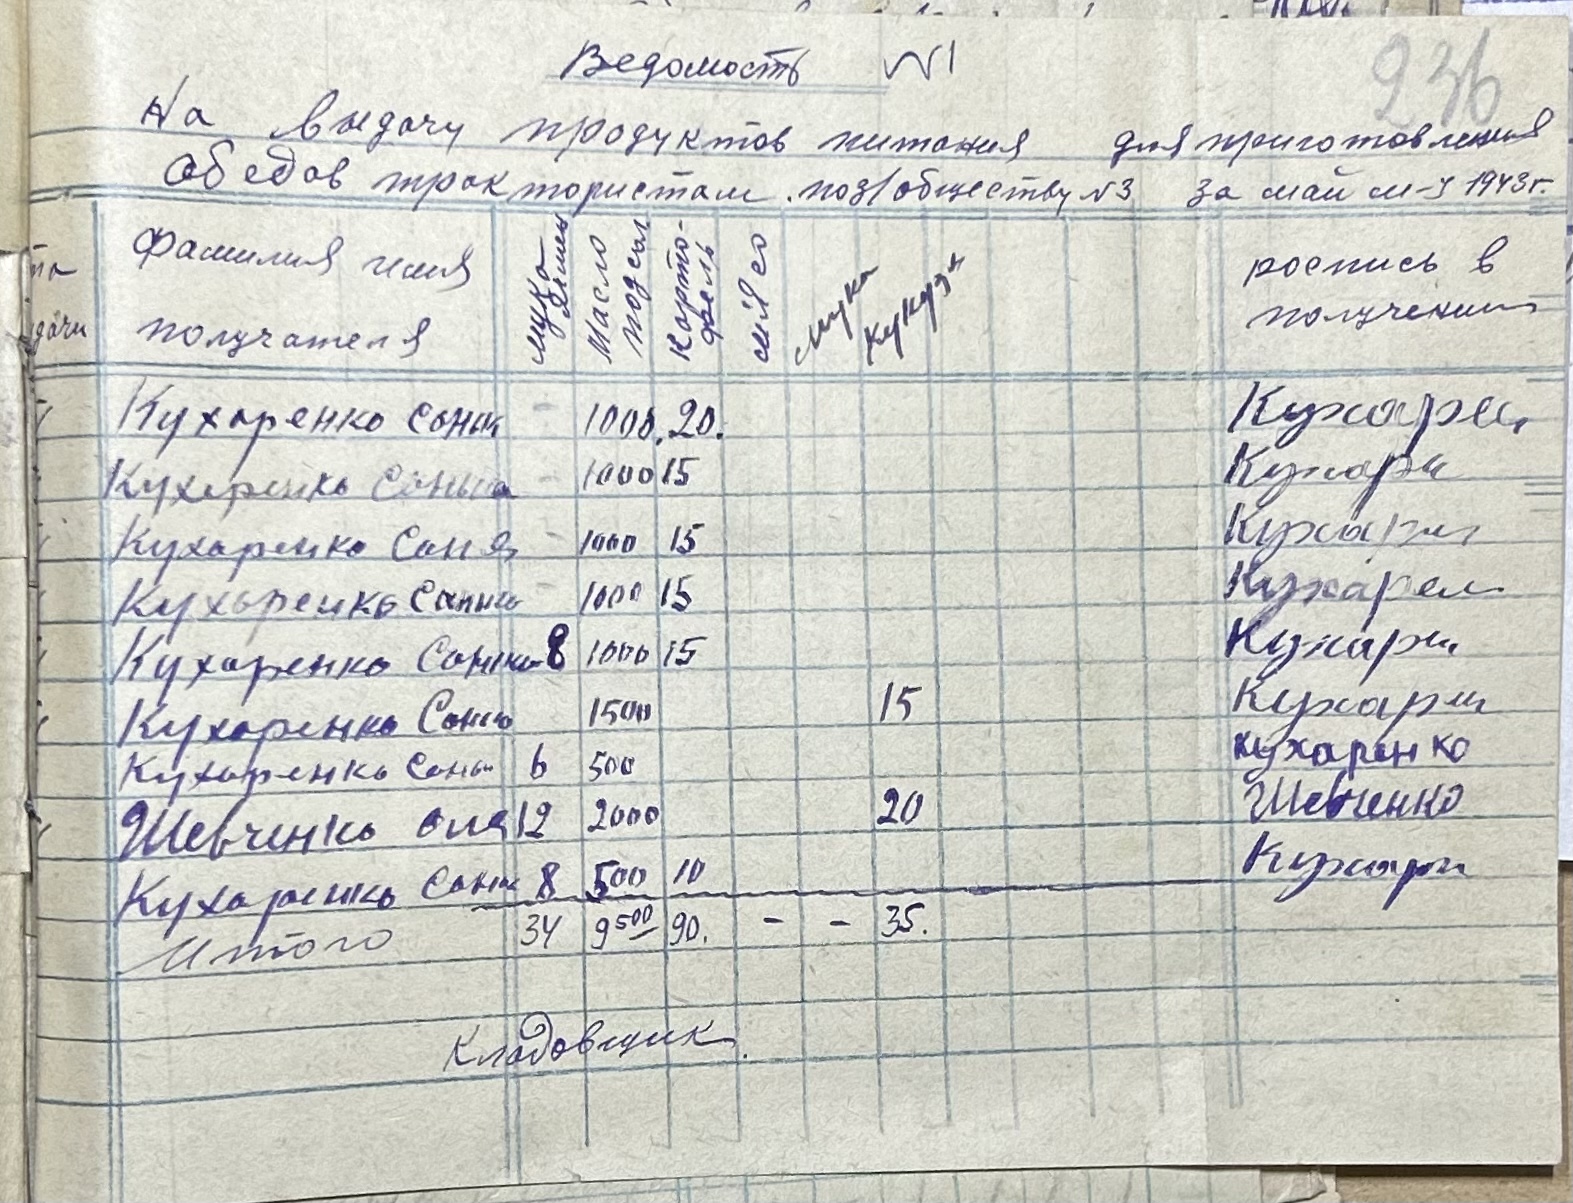 236
Ведомость №1
На выдачу продуктов питания для приготовления
Обедов трактористам поз/обществу №3 за май м-ц 1943г.
Фамилия имя получателя мука Масло подсол Карто-фель мясо мука кукурз роспись в получении
Кухаренко Соння - 1000. 20. Кухарен
Кухаренко Сонька - 1000 15 Кухарн
Кухаренко Соня - 1000 15 Кухарн
Кухаренко Сонька - 1000 15 Кухарен
Кухаренко Сонька 8 1000 15 Кухарн
Кухаренко Соньк 1500 15 Кухарн
Кухаренко Соньк 6 500 кухаренко
Шевченко Оля 12 2000 20 Шевченко
Кухаренко Соньк 8 500 10 Кухарн
Итого 34 9500 90. - - 35.
Кладовщик.